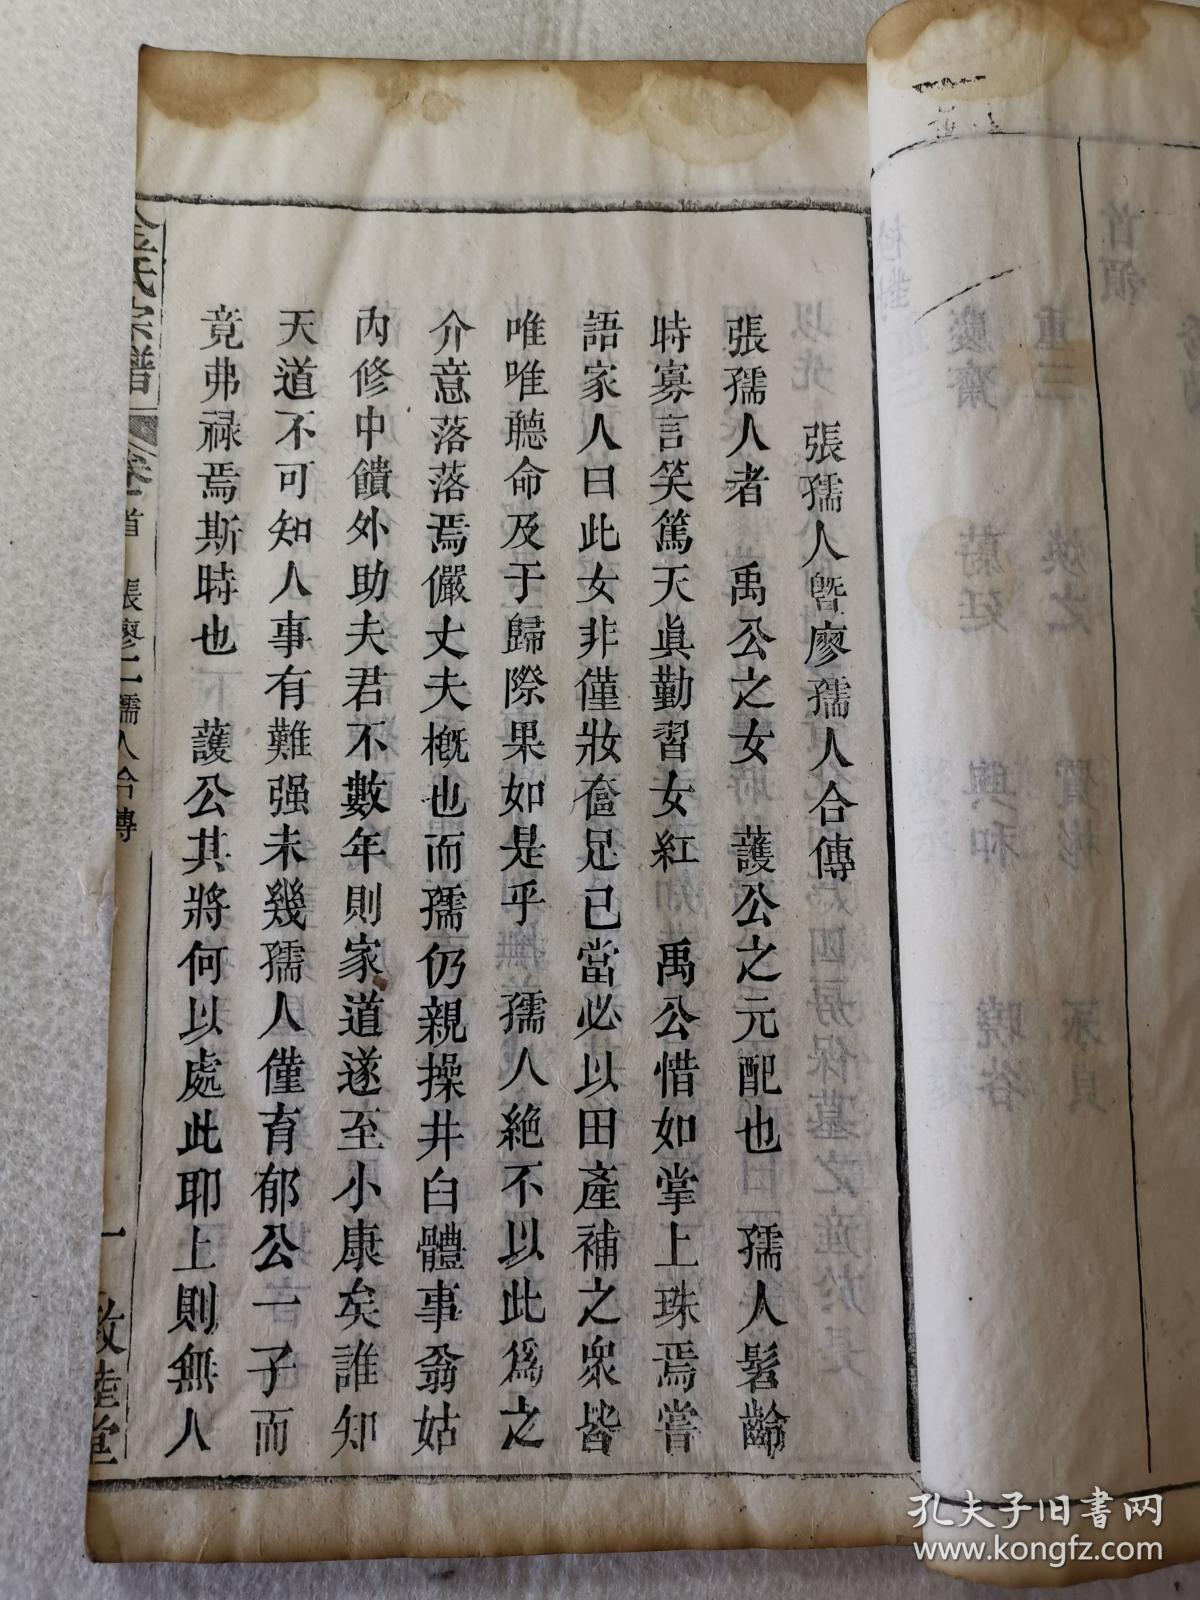 張孺人暨廖孺人合傳
張孺人者　禹公之女　護公之元配也　孺人髫齡
時寡言笑篤天眞勤習女紅　禹公惜如掌上珠焉嘗
語家人曰此女非僅妝奩足已當必以田產補之衆皆
唯唯聽命及于歸際果如是乎　孺人絶不以此爲之
介意落落焉儼丈夫槪也而孺仍親操井臼體事翁姑
內修中饋外助夫君不數年則家道遂至小康矣誰知
天道不可知人事有難强未幾孺人僅育郁公一子而
竟弗祿焉斯時也　護公其將何以處此耶上則無人
氏宗譜
卷首
張廖二孺人合傳
一
敦睦堂
首領
重三
慶齋
煥之
蔚廷
興和
曉谷
校對
孔夫子旧书网
www.kongfz.com